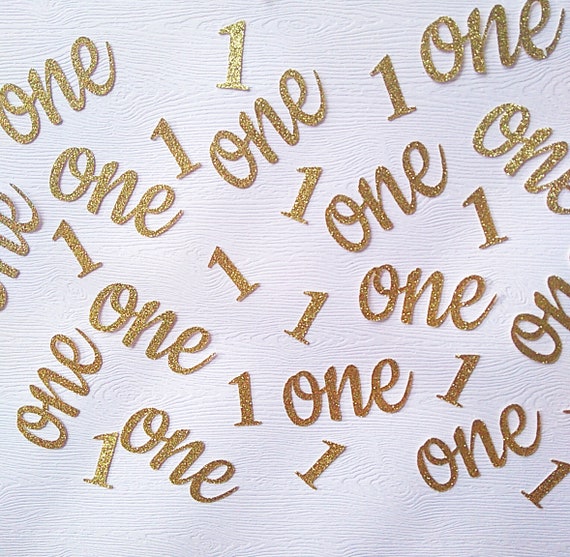 one
1
one
1
one
1
one
one
1
one
1
one
1
1
one
1
one
one
1
one
1
1
one
one
1
one
1